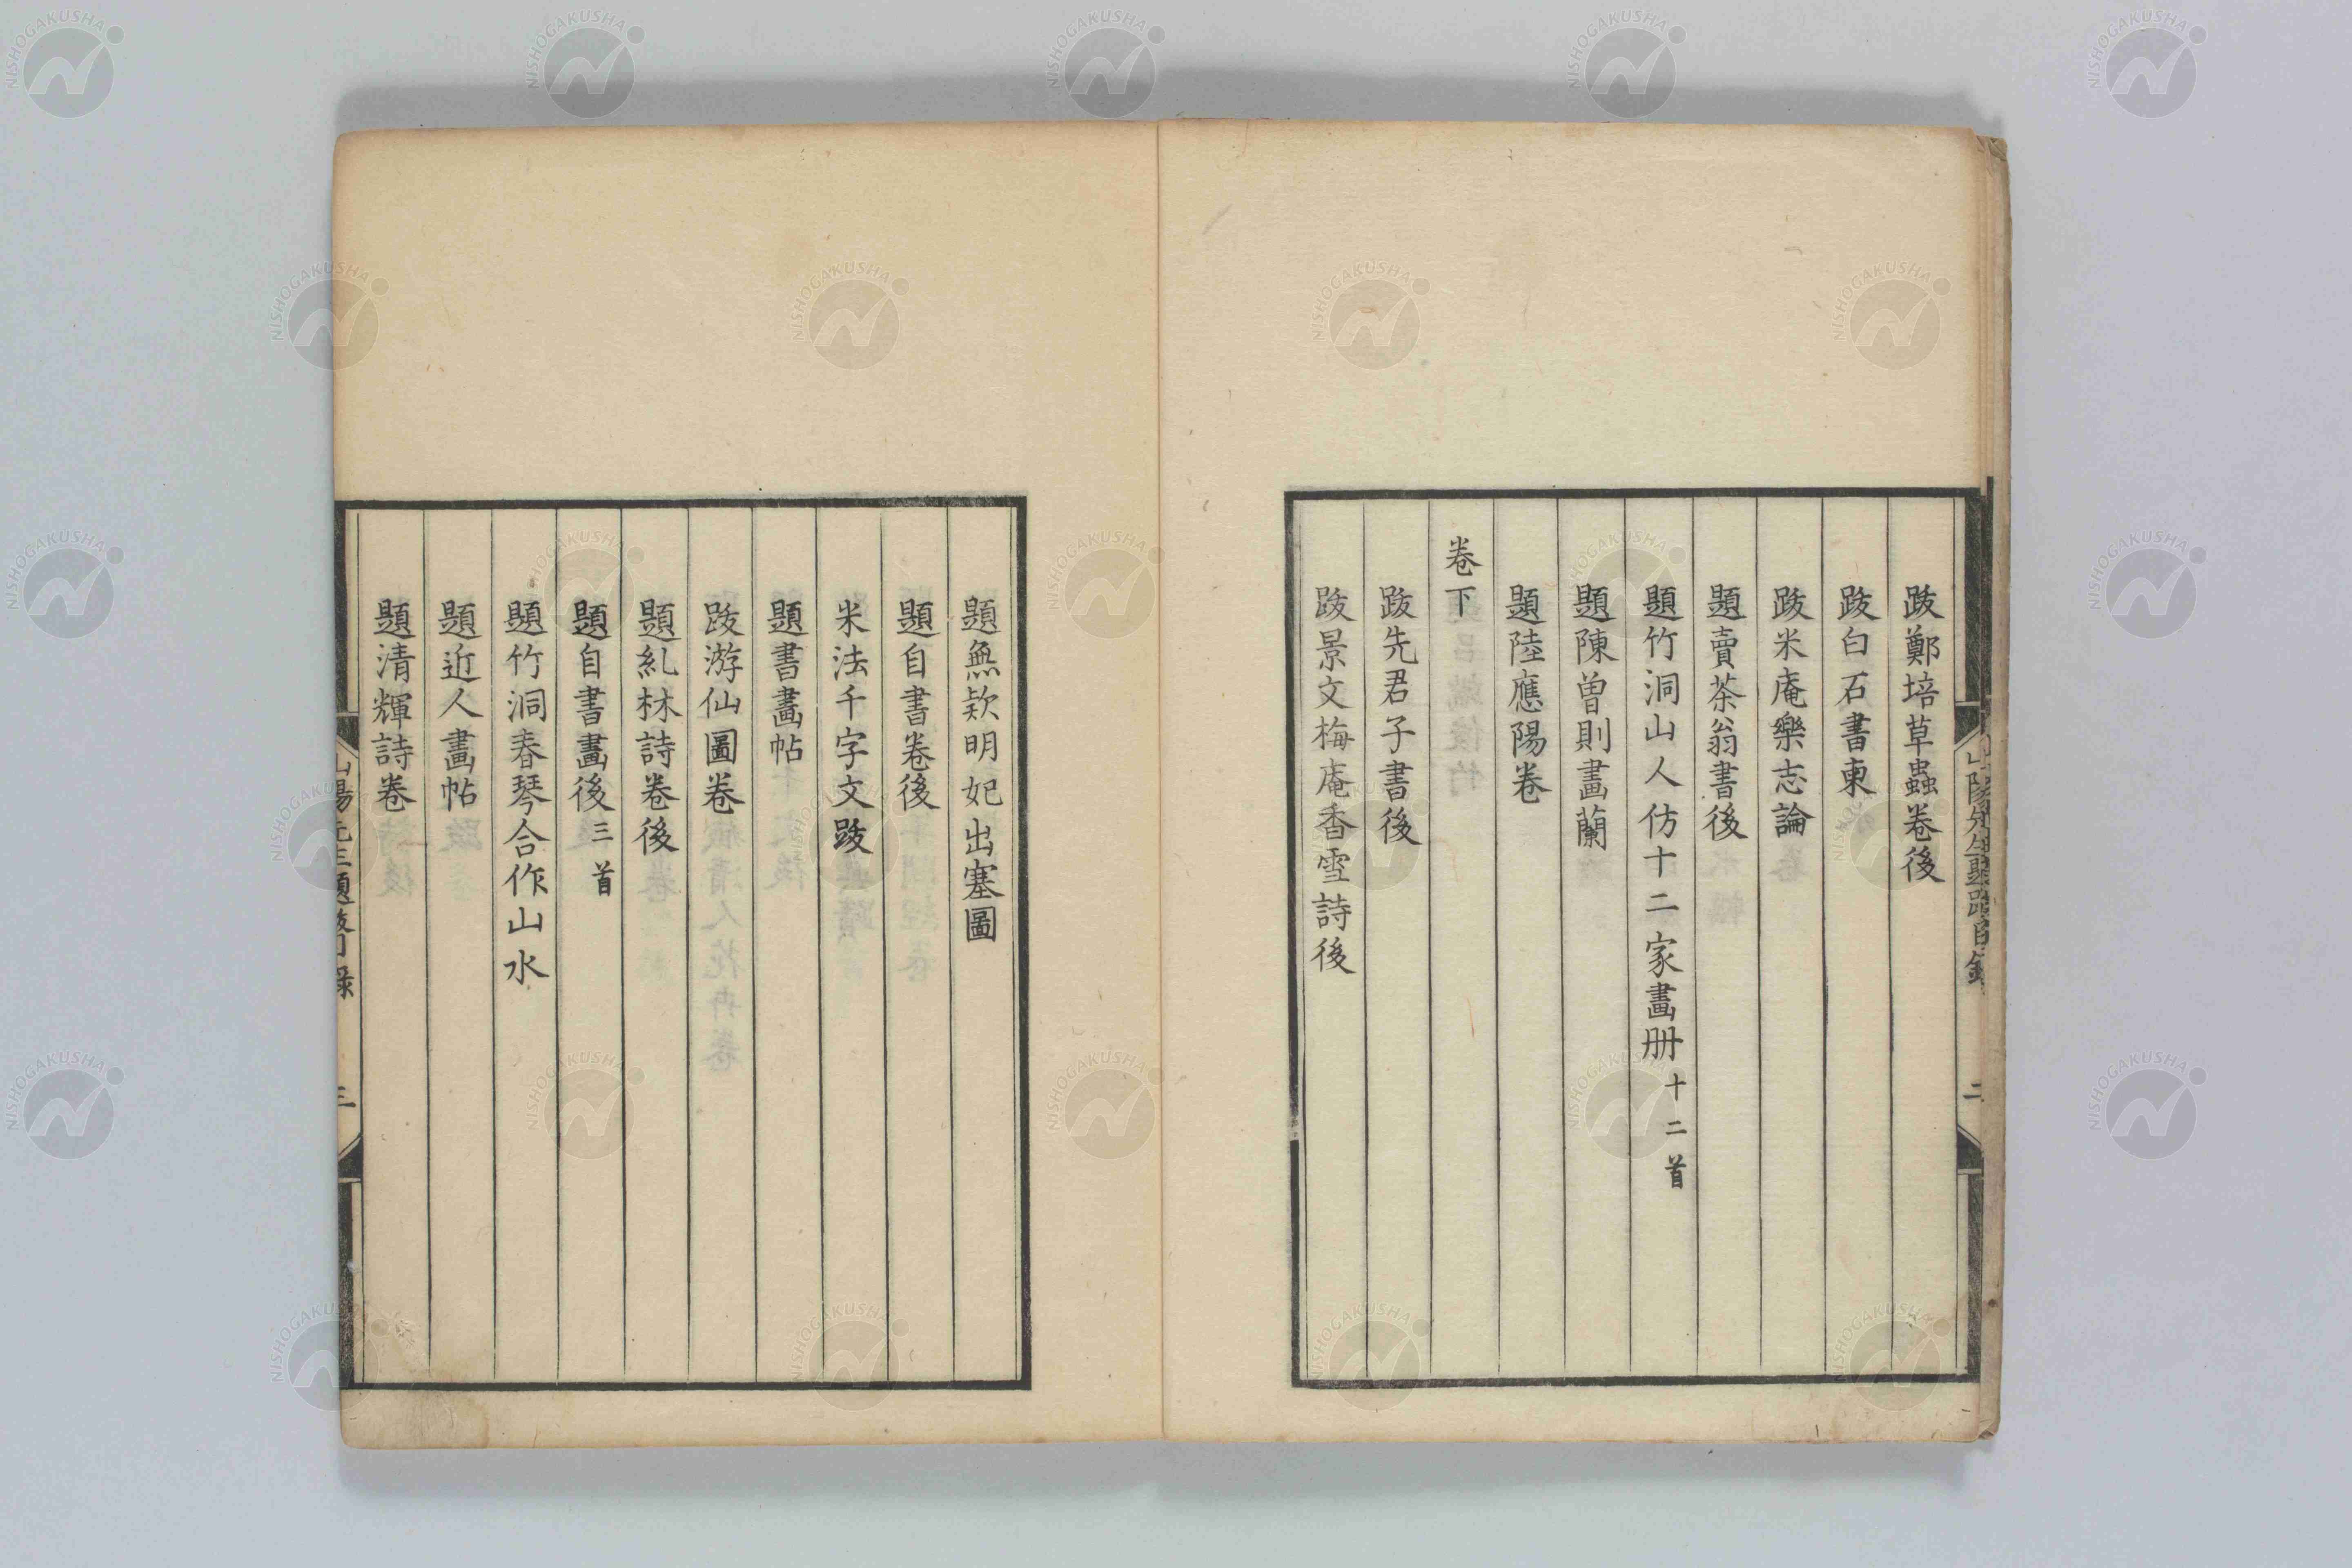 跋鄭培草蟲卷後
跋白石書柬
跋米庵樂志論
題賣茶翁書後
題竹洞山人仿十二家畫册十二首
題陳曾則畫蘭
題陸應陽卷
卷下
跋先君子書後
跋景文梅庵香雪詩後
題無款明妃出塞圖
題自書卷後
米法千字文跋
題書畫帖
跋游仙圖卷
題糺林詩卷後
題自書畫後三首
題竹洞春琴合作山水
題近人畫帖
題清輝詩卷
NISHOGAKUSHA